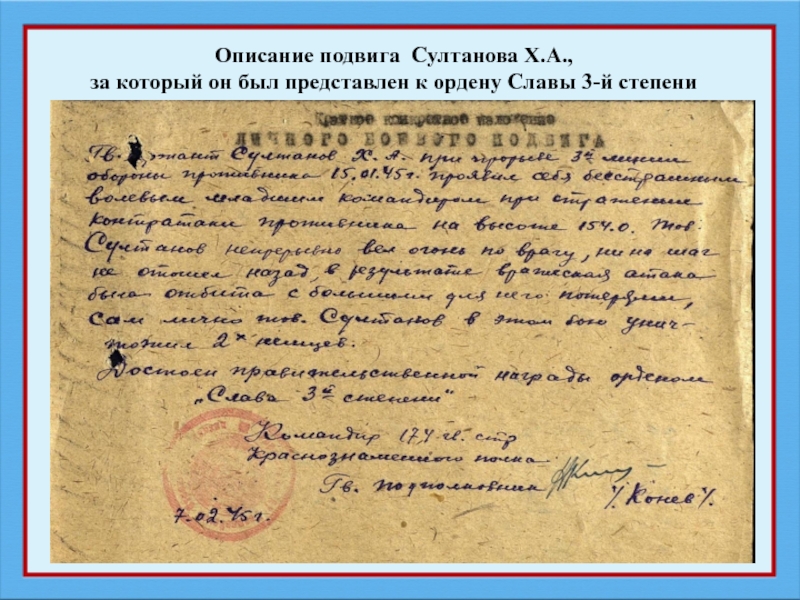 Описание подвига Султанова Х.А.,
за который он был представлен к ордену Славы 3-й степени
Краткое конкретное изложение
ЛИЧНОГО БОЕВОГО ПОДВИГА
Гв. Султанов Х. А. при прорыве 3й линии
обороны противника 15.01.45г. проявил себя бесстрашным
волевым младшим командиром при отражении
контратаки противника на высоте 154.0. Тов.
Султанов непрерывно вел огонь по врагу, ни на шаг
не отошел назад, в результате вражеская атака
была отбита с большими для него потерями,
сам лично тов. Султанов в этом бою унич-
тожил 2х немцев.
Достоин правительственной награды орденом
„Слава 3й степени"
Командир 174 гв. стр
Краснознаменного полка
Гв. подполковник /Конев/.
7.02.45г.